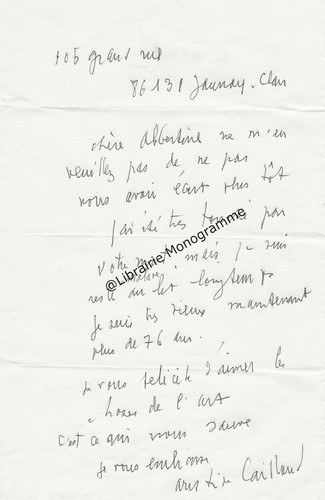 105 grand rue
86130 Jaunay-Clan
chère Albertine ne m'en
veuillez pas de ne pas
vous avoir écrit plus tôt
j'ai été très par
votre mais je suis
malade
resté au lit longtemps
Je suis très vieux maintenant
plus de 76 ans.
je vous félicite d'aimer les
choses de l'art
c'est ce qui nous sauve
je vous embrasse
aristide Caillaud
@Librairie Monogramme